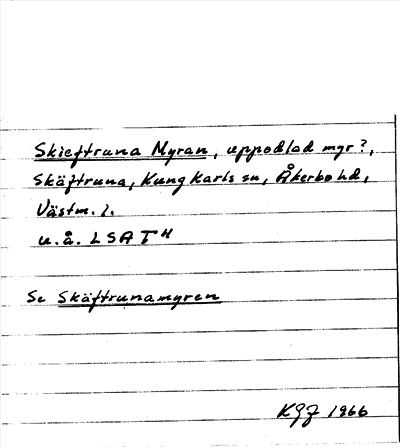 Skieftruna Myran, uppodlad myr?,
Skäftruna, Kung Karls sn, Åkerbo hd,
Västm. l.
u.å. LSA T H
Se Skäftrunamyren
KGJ 1966